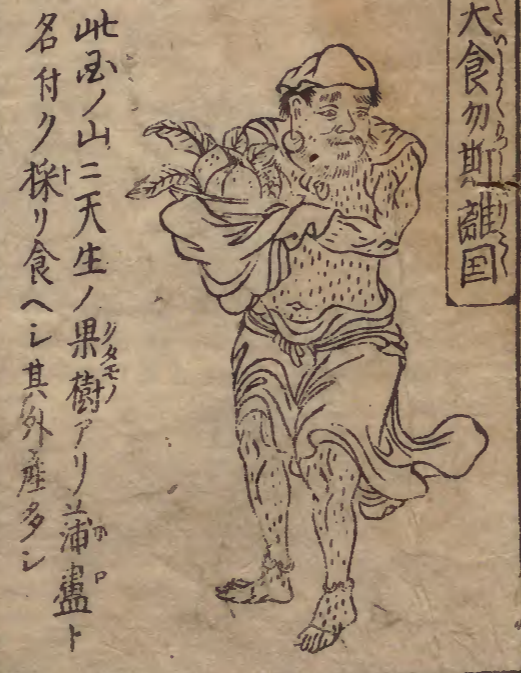 大食勿斯離国
此国ノ山ニ天生ノ果樹アリ蒲盧ト
名付ク採リ食ヘシ其外産多シ
クタモノ
ト